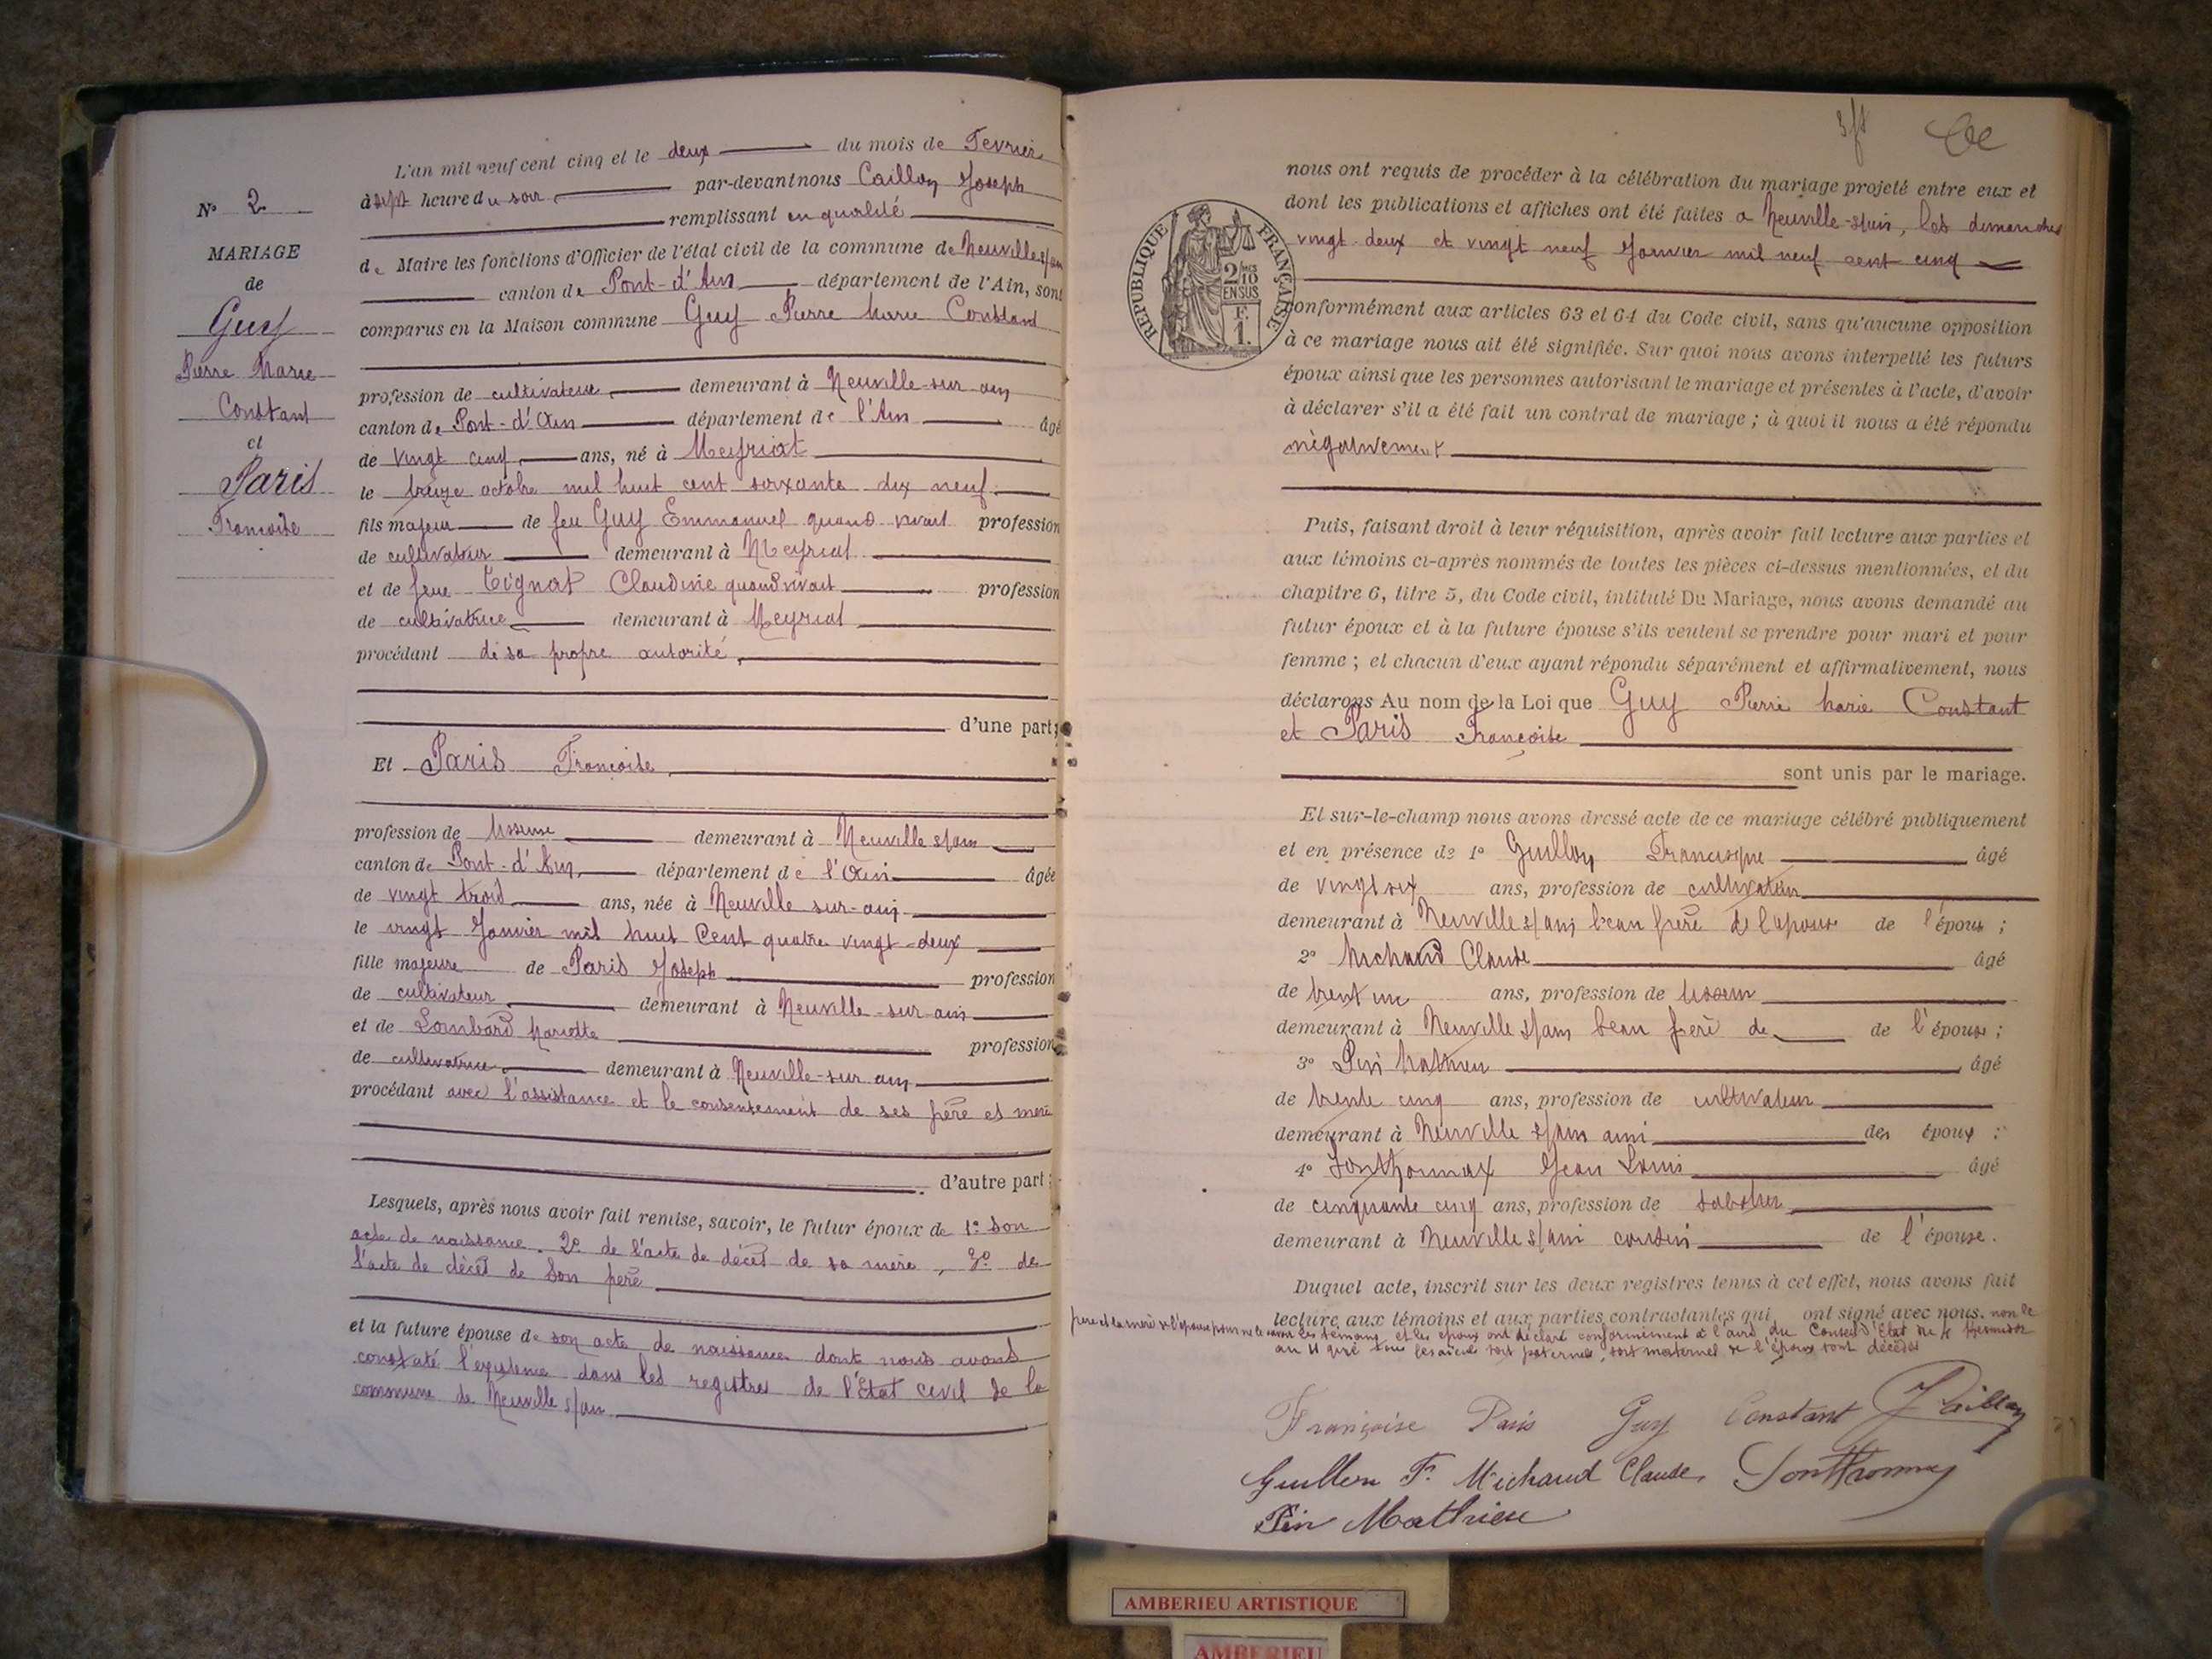 L'an mil neuf cent cinq et le deux du mois de Fevrier
à sept heure du soir par-devant nous Caillon Joseph
remplissant en qualité
de Maire les fonctions d'Officier de l'état civil de la commune de Neuville s/ain
canton de Pont-d'Ain département de l'Ain, sont
comparus en la Maison commune Guy Pierre Marie Constant
profession de cultivateur demeurant à Neuville-sur-ain
canton de Pont-d'Ain département de l'Ain âgé
de vingt cinq ans, né à Meyriat
le treize octobre mil huit cent soixante dix neuf
fils majeur de feu Guy Emmanuel quand vivait profession
de cultivateur demeurant à Meyriat
et de feue Tignat Claudine quand vivait profession
de cultivatrice demeurant à Meyriat
procédant de sa propre autorité
d'une part;
Et Paris Françoise
profession de tisseuse demeurant à Neuville s/ain
canton de Pont-d'Ain département de l'Ain âgée
de vingt trois ans, née à Neuville-sur-ain
le vingt Janvier mil huit Cent quatre vingt-deux
fille majeure de Paris Joseph profession
de cultivateur demeurant à Neuville-sur-ain
et de Lombard Mariette profession
de cultivatrice demeurant à Neuville-sur ain
procédant avec l'assistance et le consentement de ses père et mère
d'autre part;
Lesquels, après nous avoir fait remise, savoir, le futur époux de 1º son
acte de naissance. 2º de l'acte de décès de sa mère, 3º de
l'acte de décès de son père
et la future épouse de son acte de naissance dont nous avons
constaté l'existence dans les registres de l'Etat civil de la
commune de Neuville s/ain
Nº 2
MARIAGE
de
Guy
Pierre Marie
Constant
et
Paris
Françoise
nous ont requis de procéder à la célébration du mariage projeté entre eux et
dont les publications et affiches ont été faites a Neuville-s/ain, les dimanches
vingt-deux et vingt neuf Janvier mil neuf cent cinq
REPUBLIQUE FRANÇAISE
2/10
EN SUS
F.
1.
conformément aux articles 63 et 64 du Code civil, sans qu'aucune opposition
à ce mariage nous ait été signifiée. Sur quoi nous avons interpellé les futurs
époux ainsi que les personnes autorisant le mariage et présentes à l'acte, d'avoir
à déclarer s'il a été fait un contrat de mariage; à quoi il nous a été répondu
négativement
Puis, faisant droit à leur réquisition, après avoir fait lecture aux parties et
aux témoins ci-après nommés de toutes les pièces ci-dessus mentionnées, et du
chapitre 6, titre 5, du Code civil, intitulé Du Mariage, nous avons demandé au
futur époux et à la future épouse s'ils veulent se prendre pour mari et pour
femme; et chacun d'eux ayant répondu séparément et affirmativement, nous
déclarons Au nom de la Loi que Guy Pierre Marie Constant
et Paris Françoise
sont unis par le mariage.
Et sur-le-champ nous avons dressé acte de ce mariage célébré publiquement
et en présence de 1º Guillon Francisque âgé
de vingt six ans, profession de cultivateur
demeurant à Neuville s/ain beau frère de l'épouse de l'épous;
2º Michaud Claude âgé
de trent un ans, profession de tisseur
demeurant à Neuville s/ain beau frère de de l'épouse;
3º Pin Mathieu âgé
de trente cinq ans, profession de cultivateur
demeurant à Neuville s/ain ami des époux;
4º Sonthonnax Jean Louis âgé
de cinquante cinq ans, profession de sabotier
demeurant à Neuville s/ain cousin de l'épouse.
Duquel acte, inscrit sur les deux registres tenus à cet effet, nous avons fait
lecture aux témoins et aux parties contractantes qui ont signé avec nous. non le
père et la mère de l'épouse pour ne le savoir Les témoins et les époux ont déclaré conformément à l'avis du Conseil d'Etat du 4
an que tous les aïeuls soit paternels, soit maternel de l'époux sont décédés
Françoise Paris Guy Constant J Caillon
Guillon F. Michaud Claude, Sonthonnax
Pin Mathieu
AMBERIEU ARTISTIQUE
AMBERIEU